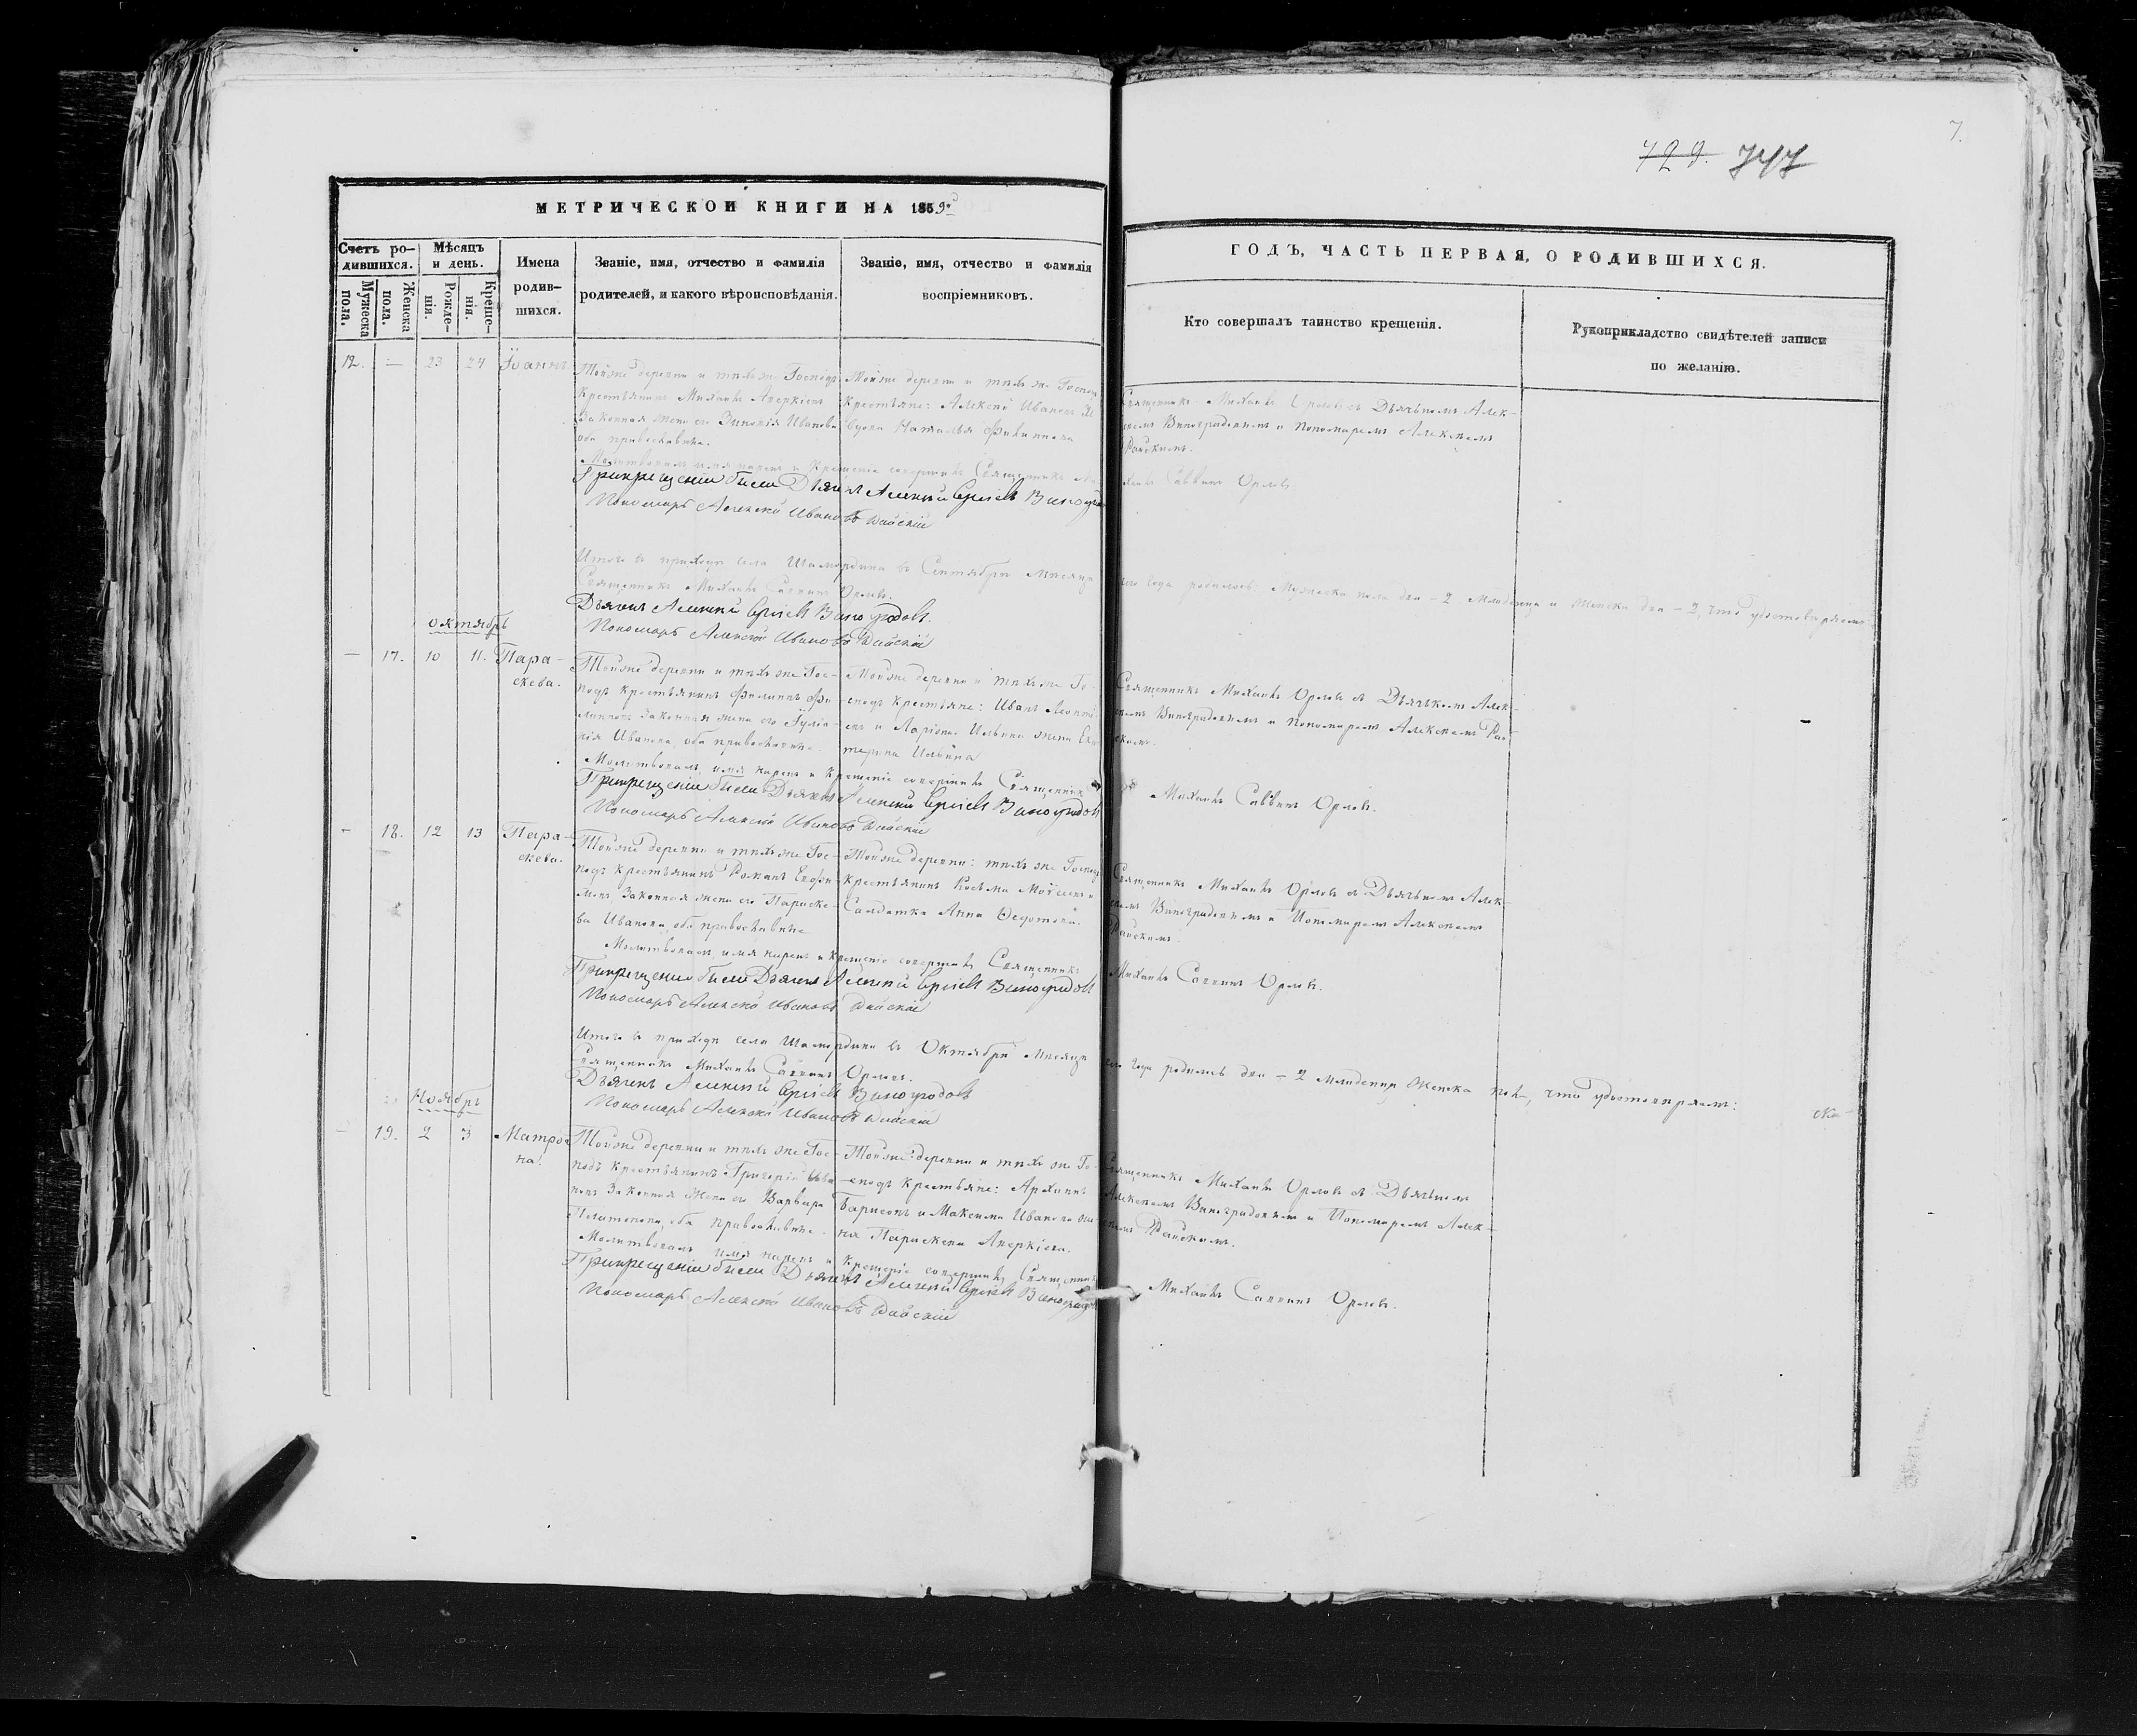 7.
729. 747
МЕТРИЧЕСКОЙ КНИГИ НА 1859й
ГОДЪ, ЧАСТЬ ПЕРВАЯ, О РОДИВШИХСЯ.
Счетъ ро-
дившихся.
Мужеска пола.
Женска пола.
Мѣсяцъ
и день.
Рожде-
нія.
Креще-
нія.
Имена
родив-
шихся.
Званіе, имя, отчество и фамилія
родителей, и какого вѣроисповѣданія.
Званіе, имя, отчество и фамилія
воспріемниковъ.
Кто совершалъ таинство крещенія.
Рукоприкладство свидѣтелей записи
по желанію.
12. — 23 24 Іоаннъ
Тойже деревни и тѣхъ же Господъ
Крестьянинъ Михаилъ Аверкіевъ
Законная жена его Зиновія Иванова
оба православные.
Тойже деревни и тѣхъ же Господъ
Крестьяне: Алексѣй Ивановъ
вдова Наталья Филиппова
Священникъ Михаилъ Орловъ съ Дьячкомъ Алек-
сѣемъ Виноградовымъ и Пономаремъ Алексѣемъ
Райскимъ.
Молитвовалъ имя нарекъ и Крещеніе совершилъ Священникъ Михаилъ Саввинъ Орловъ
При крещеніи были Дьячекъ Алексѣй Сергіевъ Виноградовъ
Пономарь Алексѣй Ивановъ Райскій
Итого въ приходѣ села Шамордина въ Сентябрѣ Мѣсяцѣ сего года родилось Мужеска пола два – 2 Младенца и Женска два – 2, что удостовѣряемъ
Священникъ Михаилъ Саввинъ Орловъ.
Дьячекъ Алексѣй Сергіевъ Виноградовъ.
Пономарь Алексѣй Ивановъ Райскій
Октябрь
— 17. 10 11. Пара-
скева.
Тойже деревни и тѣхъ же Гос-
подъ Крестьянинъ Филиппъ Фи-
липповъ Законная жена его Іуліа-
нія Иванова, оба православные.
Тойже деревни и тѣхъ же Го-
сподъ Крестьяне: Иванъ Леонті-
евъ и Ларіона Ильина жена Ека-
терина Ильина
Священникъ Михаилъ Орловъ съ Дьячкомъ Алек-
сѣемъ Виноградовымъ и Пономаремъ Алексѣемъ Рай-
скимъ.
Молитвовалъ, имя нарекъ и Крещеніе совершилъ Священникъ Михаилъ Саввинъ Орловъ.
При крещеніи были Дьячекъ Алексѣй Сергіевъ Виноградовъ
Пономарь Алексѣй Ивановъ Райскій
— 18. 12 13 Пара-
скева.
Тойже деревни и тѣхъ же Гос-
подъ Крестьянинъ Романъ Евфи-
мовъ, Законная жена его Параске-
ва Иванова, оба православные
Тойже деревни: тѣхъ же Господъ
Крестьянинъ Косьма Моѵсеевъ и
Солдатка Анна Ѳедотова.
Священникъ Михаилъ Орловъ съ Дьячкомъ Алек-
сѣемъ Виноградовымъ и Пономаремъ Алексѣемъ
Райскимъ
Молитвовалъ имя нарекъ и Крещеніе совершилъ Священникъ Михаилъ Саввинъ Орловъ.
При крещеніи были Дьячекъ Алексѣй Сергіевъ Виноградовъ
Пономарь Алексѣй Ивановъ Райскій
Итого въ приходѣ села Шамордина въ Октябрѣ Мѣсяцѣ сего года родилось два – 2 Младенца Женска пола, что удостовѣряемъ:
Священникъ Михаилъ Саввинъ Орловъ.
Дьячекъ Алексѣй Сергіевъ Виноградовъ
Пономарь Алексѣй Ивановъ Райскій
Ноябрь
— 19. 2 3 Матро-
на.
Тойже деревни и тѣхъ же Гос-
подъ Крестьянинъ Григорій Ива-
новъ Законная Жена его Варвара
Платонова, оба православные.
Тойже деревни и тѣхъ же Го-
сподъ Крестьяне: Архиппъ
Барисовъ и Максима Иванова же-
на Параскева Аверкіева.
Священникъ Михаилъ Орловъ съ Дьячкомъ
Алексѣемъ Виноградовымъ и Пономаремъ Алек-
сѣемъ Райскимъ.
Молитвовалъ имя нарекъ и Крещеніе совершилъ Священникъ Михаилъ Саввинъ Орловъ.
При крещеніи были Дьячекъ Алексѣй Сергіевъ Виноградовъ
Пономарь Алексѣй Ивановъ Райскій